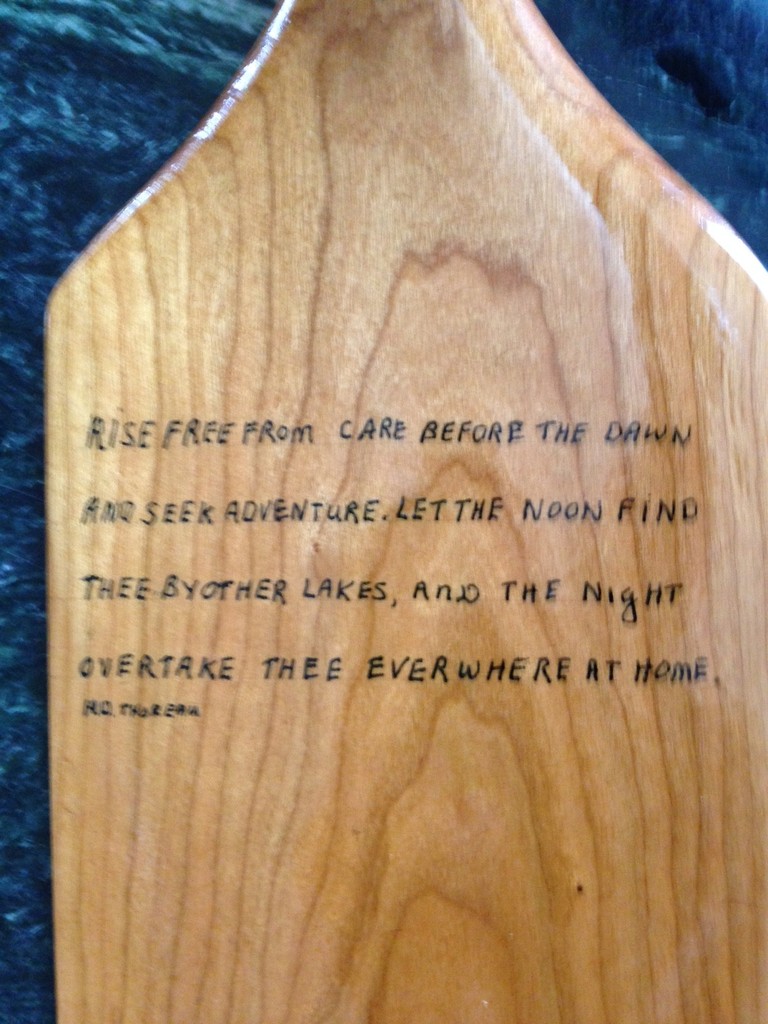 RISE FREE FROM CARE BEFORE THE DAWN
AND SEEK ADVENTURE. LET THE NOON FIND
THEE BY OTHER LAKES, AND THE NIGHT
OVERTAKE THEE EVERWHERE AT HOME.
H.D. THOREAU